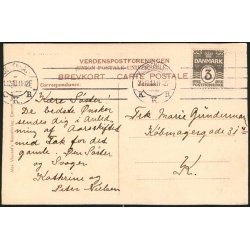 VERDENSPOSTFORENINGEN
UNION POSTALE UNIVERSELLE
BREVKORT CARTE POSTALE
Correspondance:
DANMARK
3
Kære Søster!
De bedste Ønsker
sendes dig i Anled-
ning af Aarsskiftet
med Tak for det
gamle. Din Søster
og Svoger
Kathrine og
Peter Nielsen
Frk Marie Gunderman
Købmagergade 31
K.